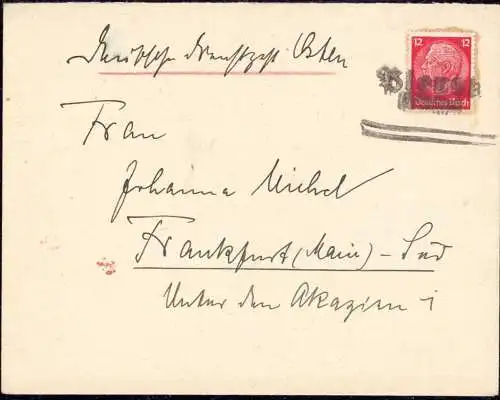 Deutsche Dienstpost Osten
12 12
Deutsches Reich
Frau
Johanna Michel
Frankfurt (Main) - Süd
Unter den Akazien 1